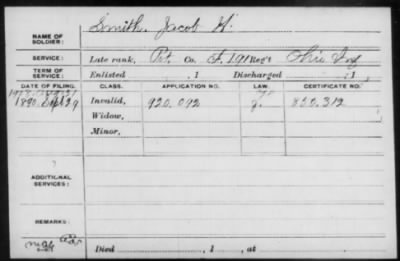 NAME OF SOLDIER: Smith, Jacob H.
SERVICE: Late rank, Pvt. Co. F, 191 Reg't Ohio Inf
TERM OF SERVICE: Enlisted , 1 Discharged , 1
DATE OF FILING. CLASS. APPLICATION NO. LAW. CERTIFICATE NO.
1890 29 Invalid, 920.092 J. 850.312
Widow,
Minor,
ADDITIONAL SERVICES:
REMARKS:
Died , 1 , at